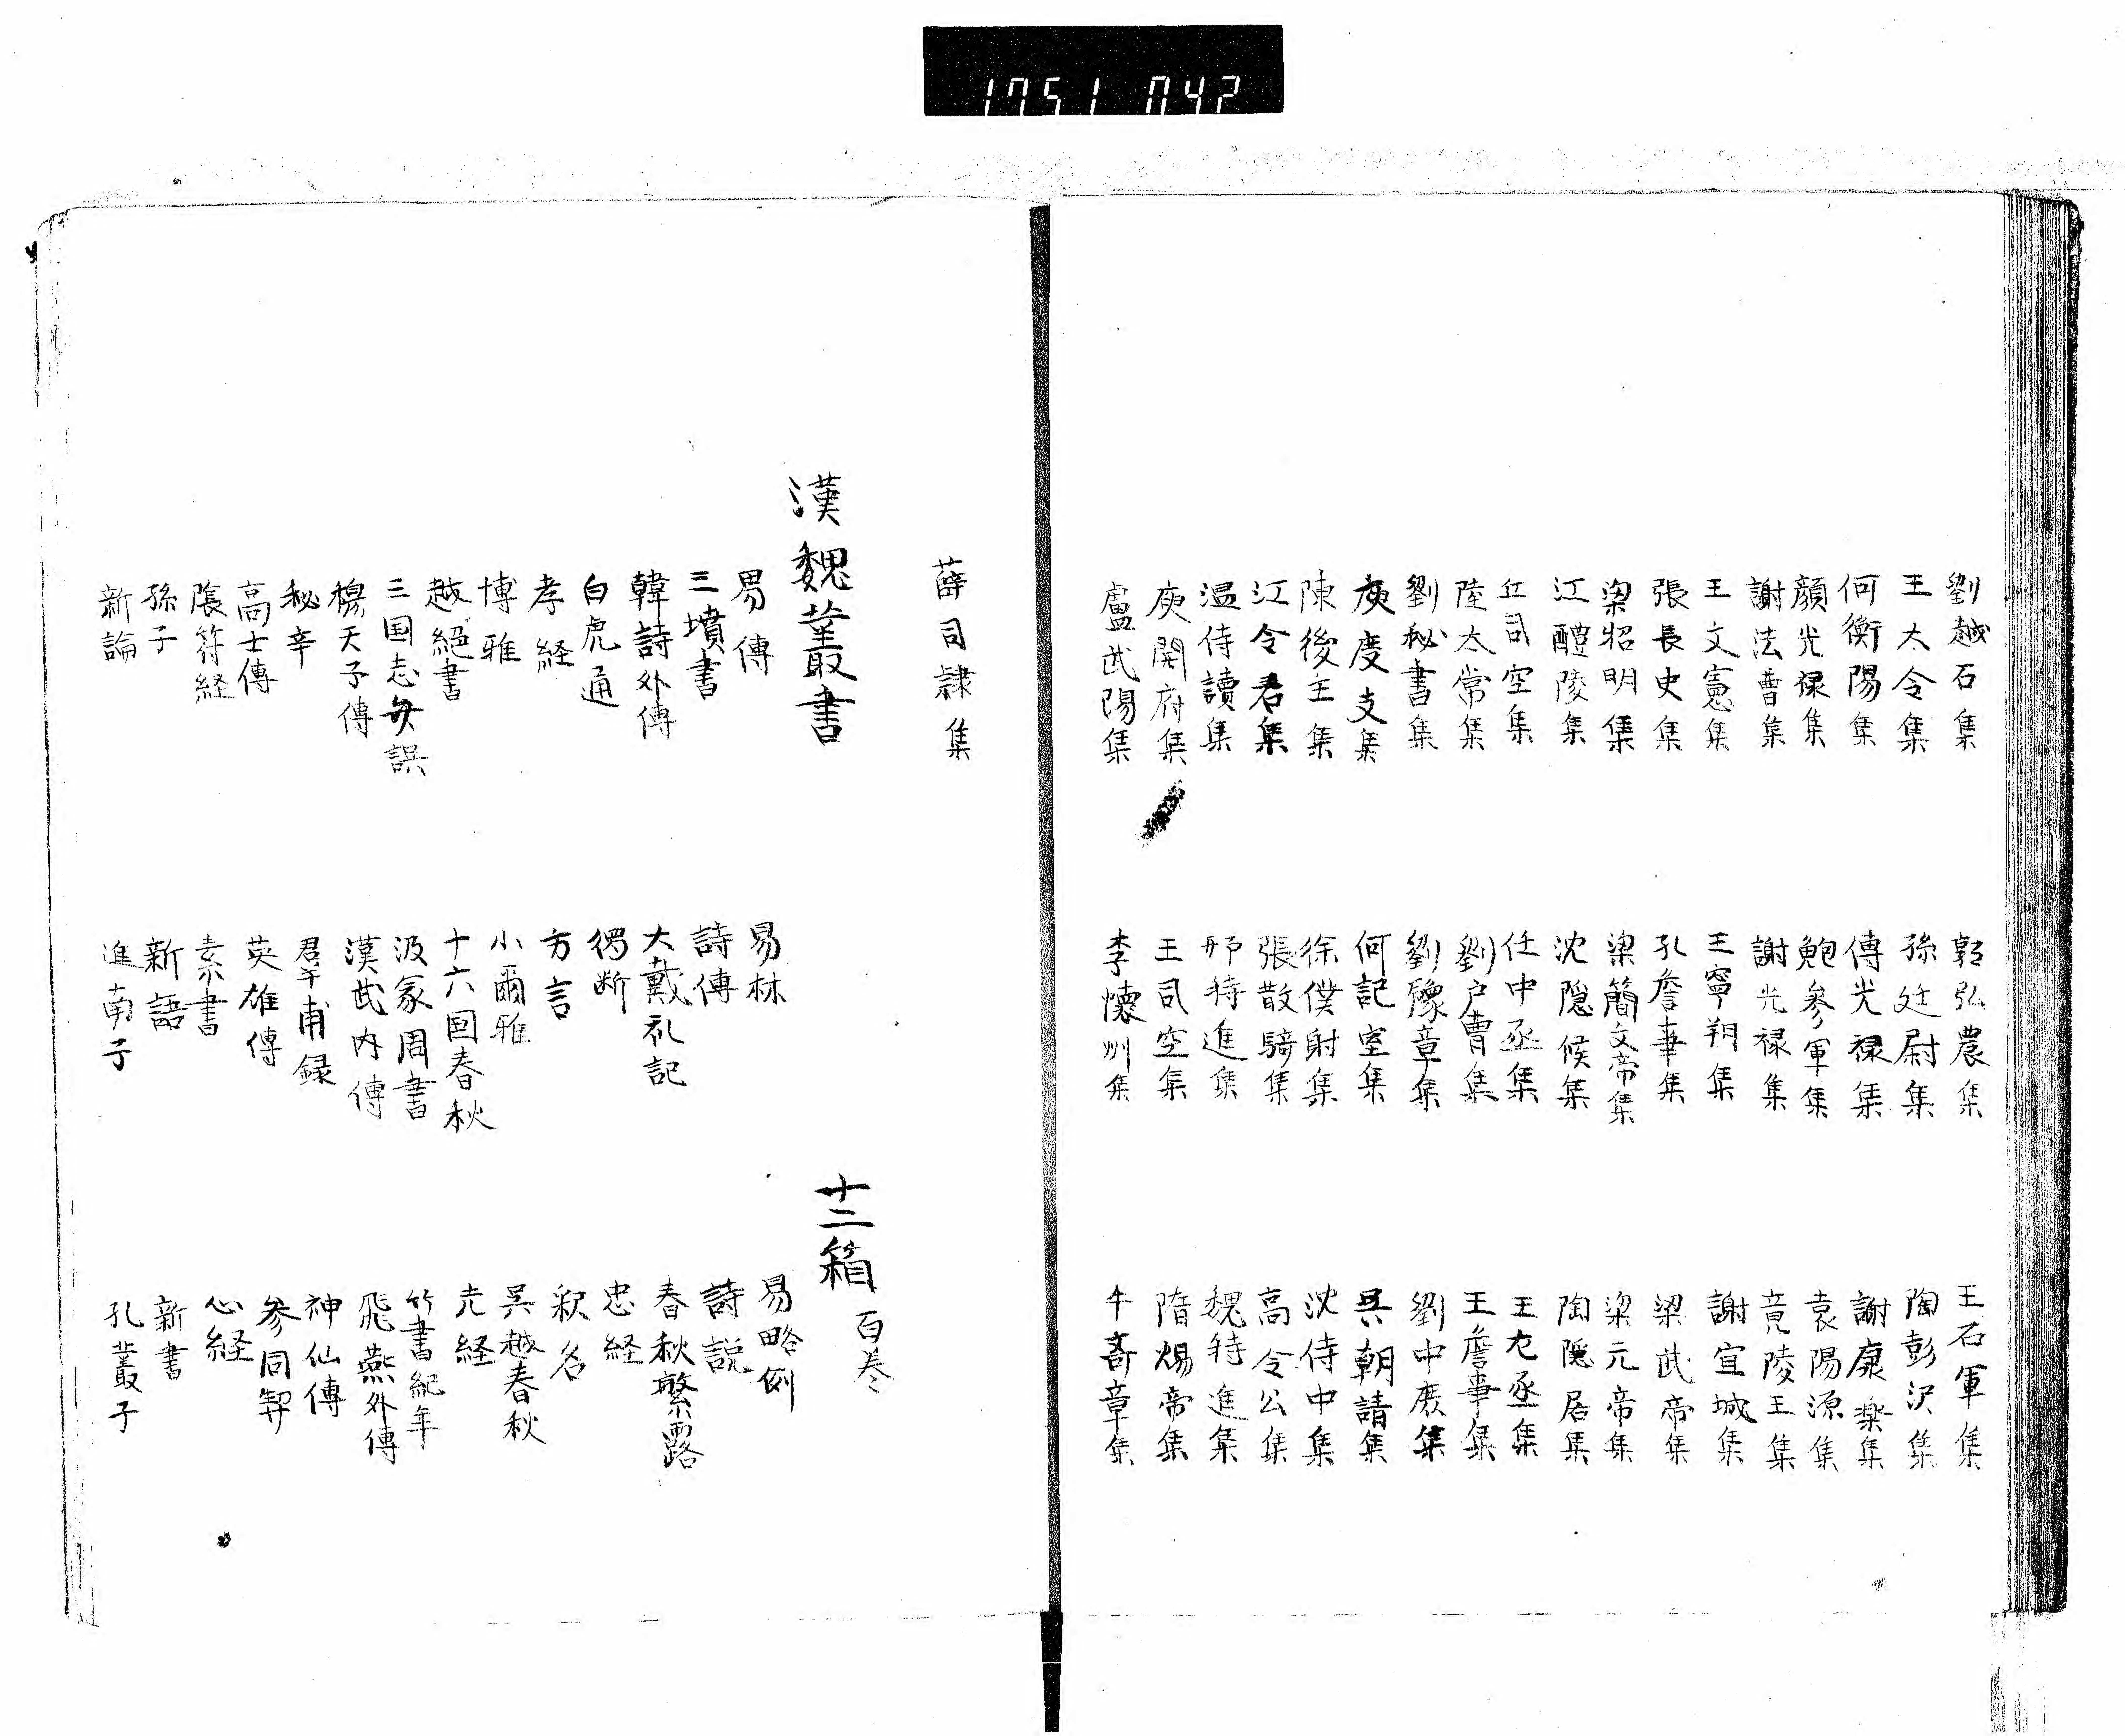 1751 042
劉越石集 郭弘農集 王石軍集
王大令集 孫廷尉集 陶彭沢集
何衡陽集 傅光禄集 謝康楽集
顔光禄集 鮑参軍集 袁陽源集
謝法曹集 謝光禄集 竟陵王集
王文憲集 王寧朔集 謝宜城集
張長史集 孔詹事集 梁武帝集
梁昭明集 梁簡文帝集 梁元帝集
江醴陵集 沈隠候集 陶隠居集
丘司空集 任中丞集 王左丞集
陸太常集 劉户曹集 王詹事集
劉秘書集 劉豫章集 劉中庶集
庾度支集 何記室集 呉朝請集
陳後主集 徐僕射集 沈侍中集
江令君集 張散騎集 高令公集
温侍讀集 邢特進集 魏特進集
庾開府集 王司空集 隋煬帝集
盧武陽集 李懐州集 牛奇章集
薛司隷集
漢魏叢書 十二箱 百巻
易傳 易林 易略例
三墳書 詩傳 詩説
韓詩外傳 大戴礼記 春秋繁露
白虎通 獨断 忠経
孝経 方言 釈名
博雅 小爾雅 呉越春秋
越絕書 十六国春秋 元経
三国志弁誤 汲冢周書 竹書紀年
穆天子傳 漢武内傳 飛燕外傳
秘辛 群甫録 神仙傳
高士傳 英雄傳 参同契
陰符経 素書 心経
孫子 新語 新書
新論 淮南子 孔叢子